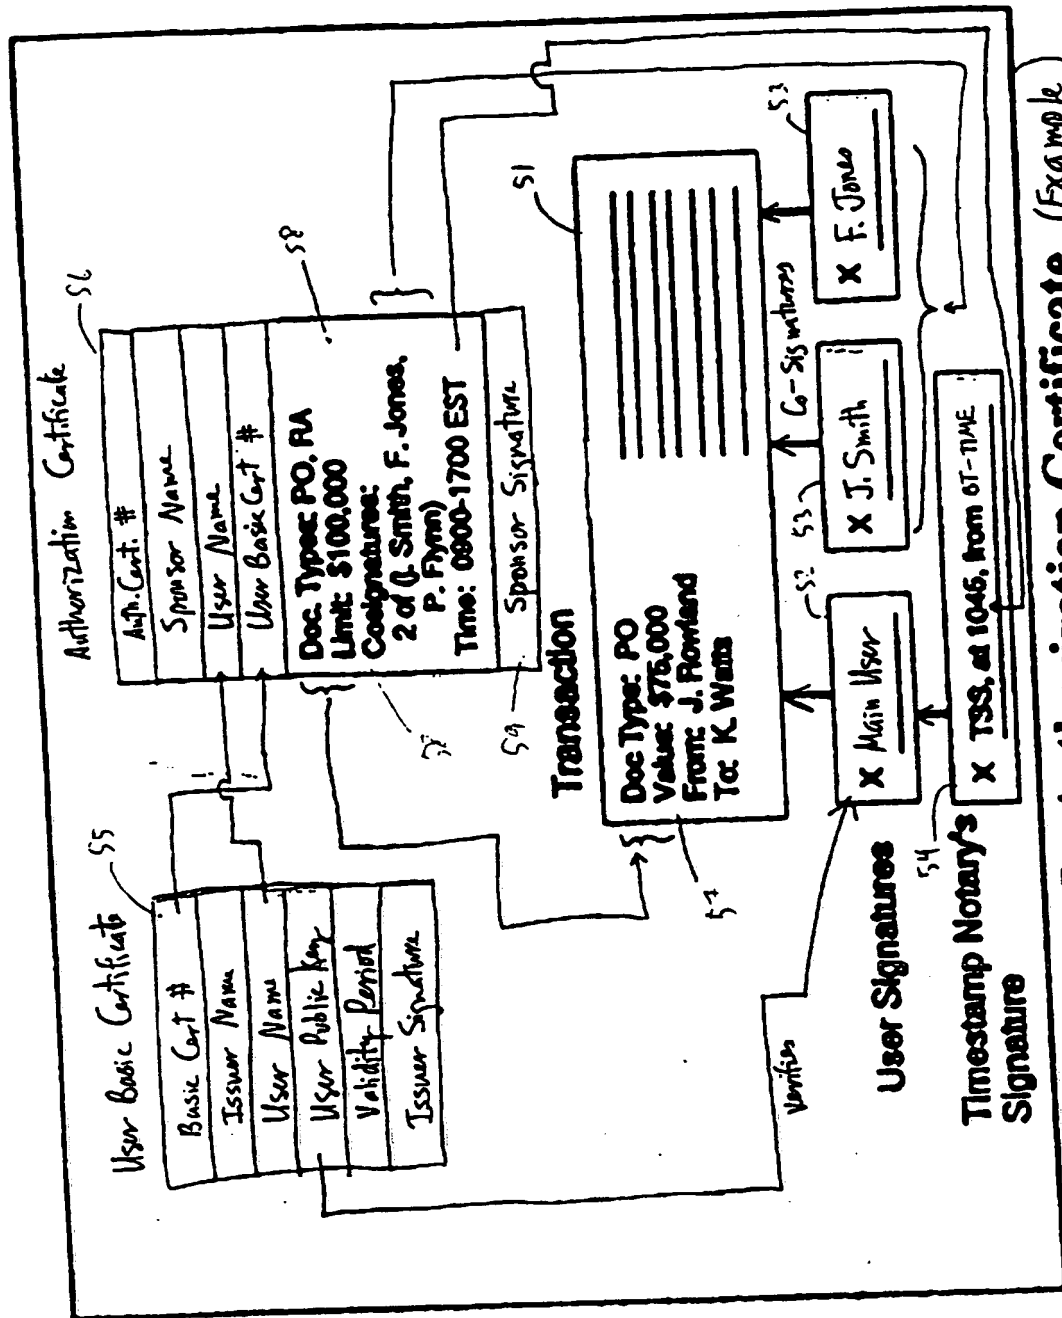 User Basic Certificate
55
Basic Cert #
Issuer Name
User Name
User Public Key
Validity Period
Issuer Signature
Authorization Certificate
56
Auth. Cert. #
Sponsor Name
User Name
User Basic Cert #
Doc. Types: PO, RA
Limit: $100,000
Cosignatures:
2 of (J. Smith, F. Jones,
P. Flynn)
Time: 0900-1700 EST
58
Sponsor Signature
59
Transaction
51
Doc Type: PO
Value: $75,000
From: J. Rowland
To: K. Watts
57
verifies
User Signatures
52
X Main User
Co-Signatures
53
X J. Smith
53
X F. Jones
Timestamp Notary's
Signature
54
X TSS, at 1045, from
Certificate (Example